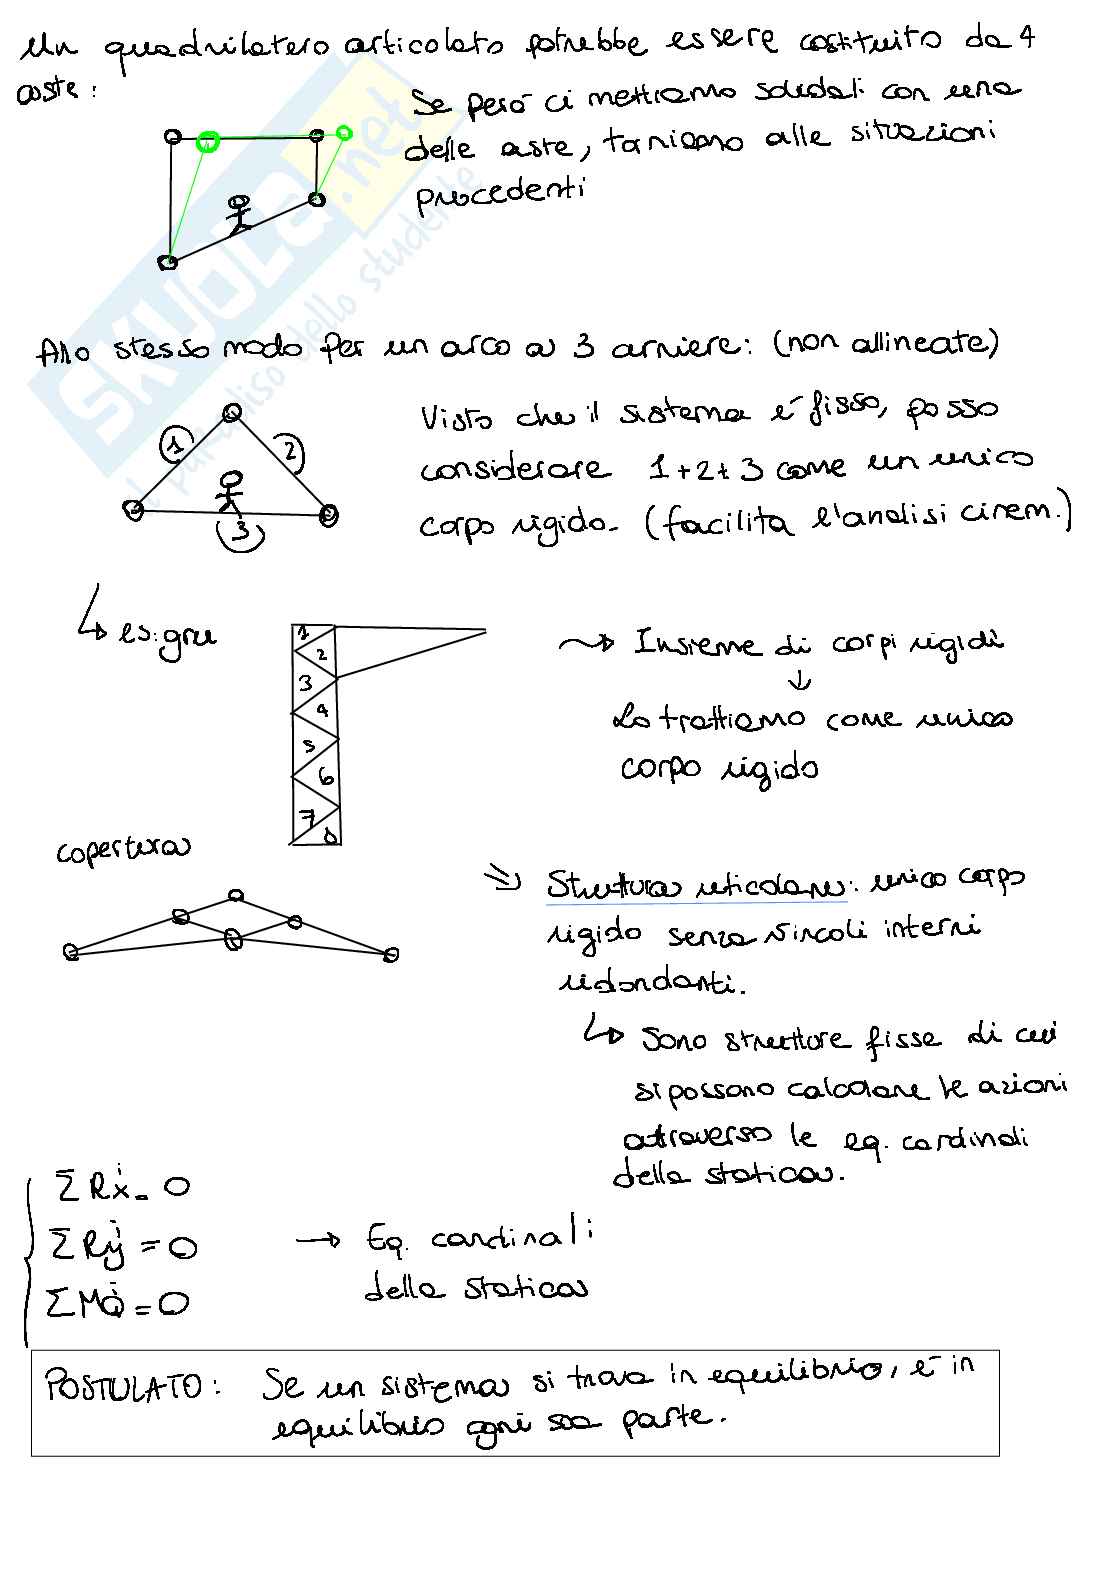 Un quadrilatero articolato potrebbe essere costituito da 4
aste:
Se però ci mettiamo solidali con una
delle aste, torniamo alle situazioni
precedenti
SKUOLA.net
il paradiso dello studente
Allo stesso modo per un arco a 3 cerniere: (non allineate)
1
2
3
Visto che il sistema è fisso, posso
considerare 1+2+3 come un unico
corpo rigido. (facilita l'analisi cinem.)
es: gru
1
2
3
4
5
6
7
8
Insieme di corpi rigidi
Lo trattiamo come unico
corpo rigido
copertura
Struttura reticolare: unico corpo
rigido senza vincoli interni
ridondanti.
Sono strutture fisse di cui
si possono calcolare le azioni
attraverso le eq. cardinali
della statica.
ΣRxⁱ = 0
ΣRyⁱ = 0
ΣMQⁱ = 0
→ Eq. cardinali
della statica
POSTULATO: Se un sistema si trova in equilibrio, è in
equilibrio ogni sua parte.